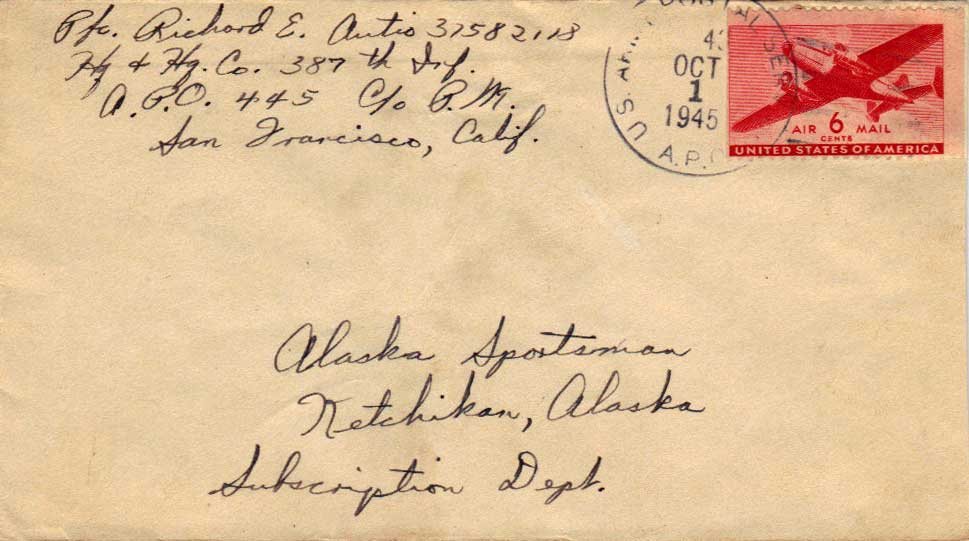 Pfc. Richard E. Autio 37582118
Hq & Hq. Co. 387 th Inf.
A.P.O. 445 C/o P.M.
San Francisco, Calif.
U.S. ARMY POSTAL SER
43
OCT
1
1945
A.P.O
AIR 6 MAIL
CENTS
UNITED STATES OF AMERICA
Alaska Sportsman
Ketchikan, Alaska
Subscription Dept.